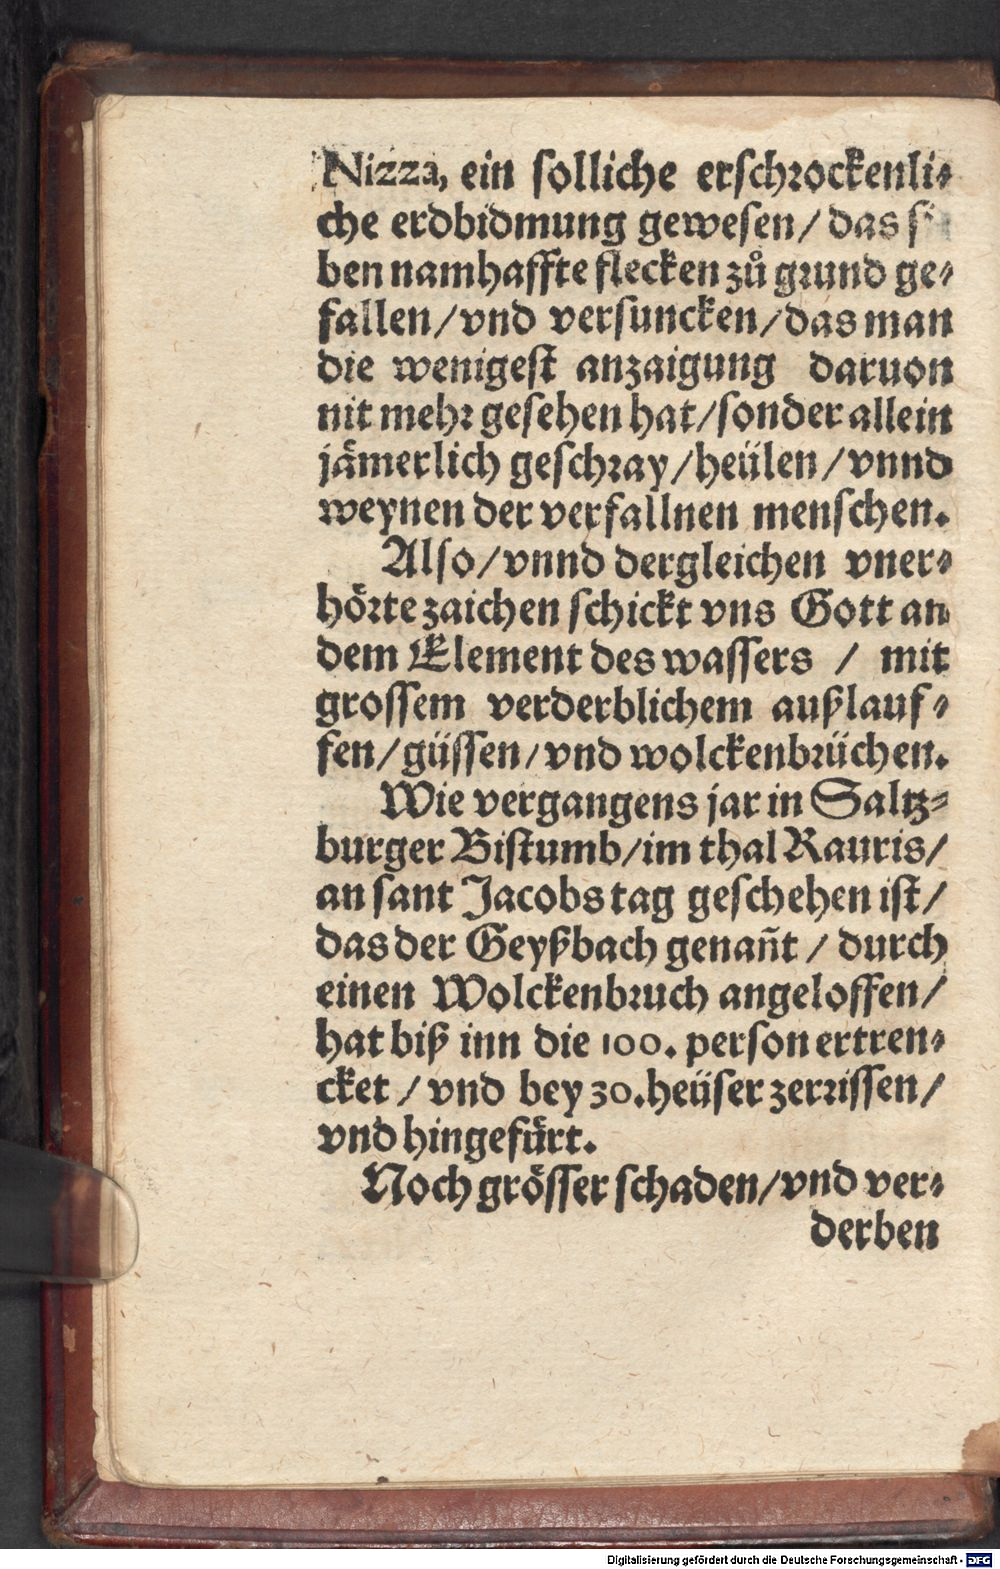 Nizza, ein solliche erschrockenli-
che erdbidmung gewesen/ das
ben namhaffte flecken zů grund ge-
fallen/ vnd versuncken/ das man
die wenigest anzaigung daruon
nit mehr gesehen hat/ sonder allein
jämerlich geschray/ heülen/ vnnd
weynen der verfallnen menschen.
Also/ vnnd dergleichen vner-
hörte zaichen schickt vns Gott an
dem Element des wassers / mit
grossem verderblichem außlauf-
fen/ güssen/ vnd wolckenbrüchen.
Wie vergangens jar in Saltz-
burger Bistumb/ im thal Rauris/
an sant Jacobs tag geschehen ist/
das der Geyßbach genañt / durch
einen Wolckenbruch angeloffen/
hat biß inn die 100. person ertren-
cket / vnd bey 30. heüser zerrissen/
vnd hingefürt.
Noch grösser schaden/ vnd ver-
derben
Digitalisierung gefördert durch die Deutsche Forschungsgemeinschaft - DFG